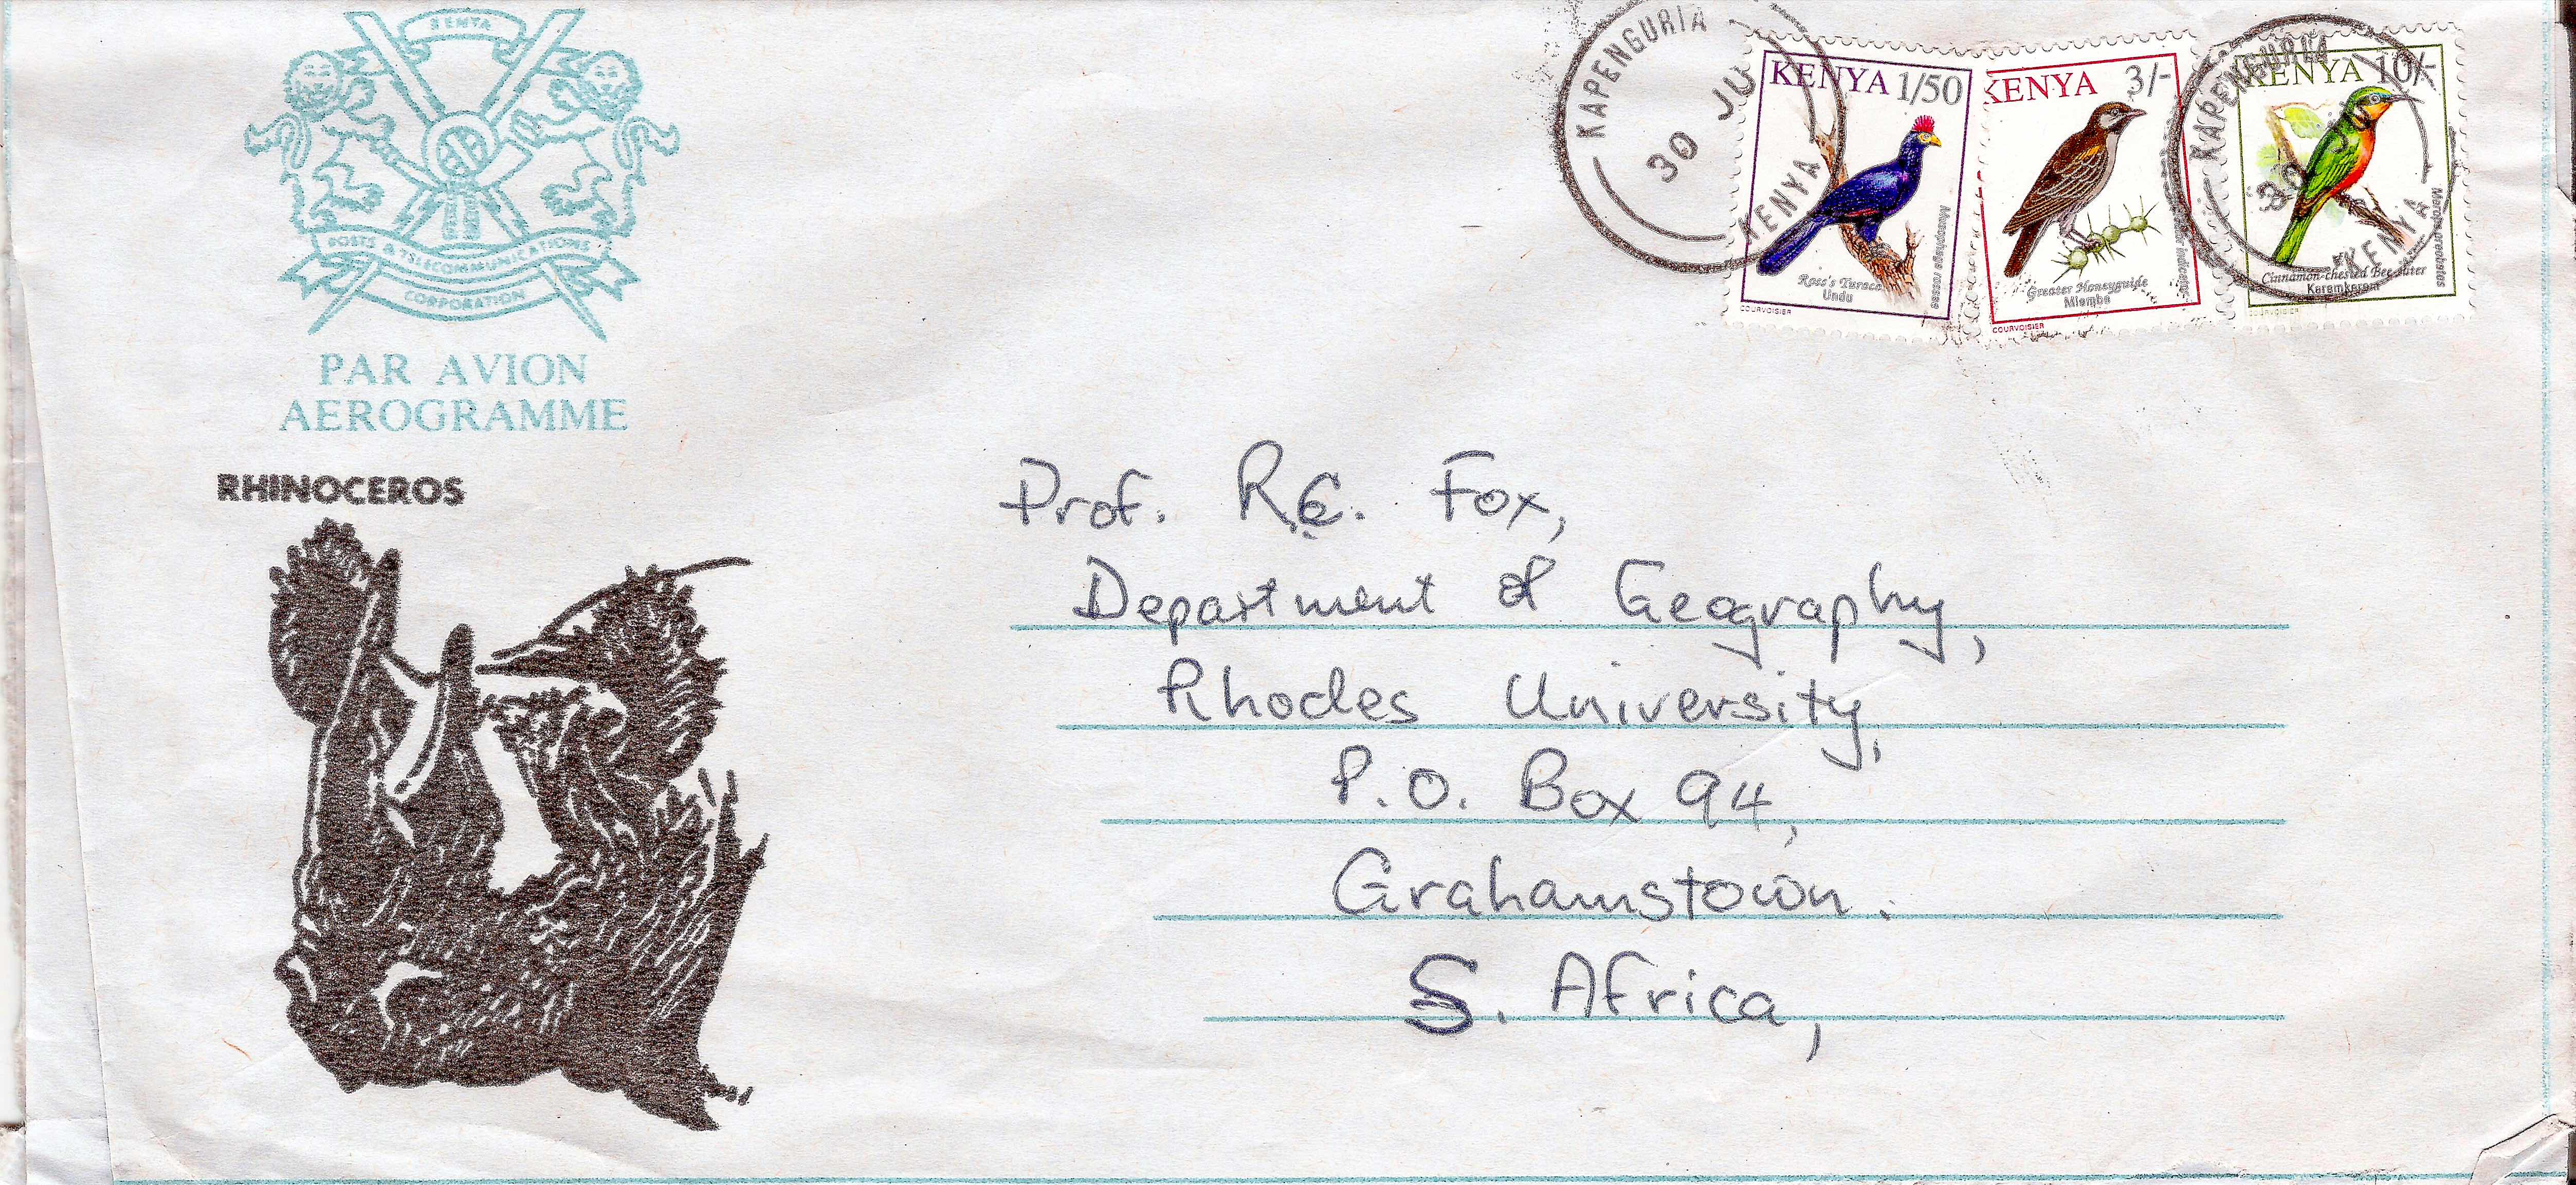 KENYA
POSTS & TELECOMMUNICATIONS
CORPORATION
PAR AVION
AEROGRAMME
RHINOCEROS
KAPENGURIA
30 JU
KENYA
KENYA 1/50
Musophaga rossae
Ross's Turaco
Undu
COURVOISIER
KENYA 3/-
indicator
Greater Honeyguide
Mlembe
COURVOISIER
KAPENGURIA
30
KENYA
KENYA 10/-
Merops oreobates
Cinnamon-chested Bee-eater
Keremkerem
COURVOISIER
Prof. R.C. Fox,
Department of Geography,
Rhodes University,
P.O. Box 94,
Grahamstown.
S. Africa,